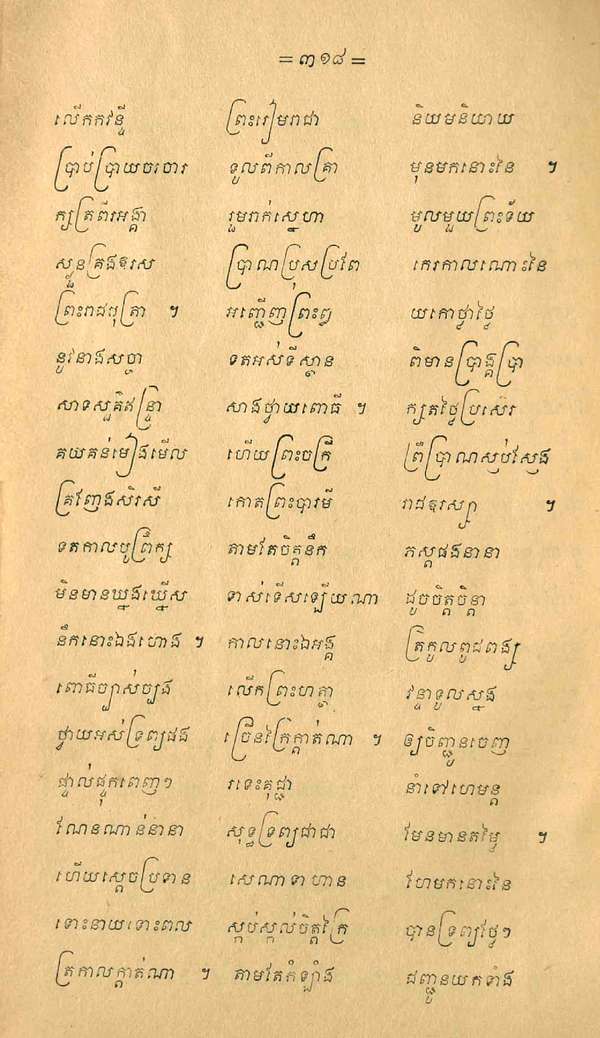 = ៣១៨ =
លើកកវន្ទី ព្រះរៀមរាជា និយមនិយាយ
ប្រាប់ប្រាយចរចារ ទូលពីកាលគ្រា មុនមកនោះនៃ ។
ក្សត្រពីរអង្គា រួមរាក់ស្នេហា មូលមួយព្រះទ័យ
ស្ងួនគ្រងឱរស ប្រាណប្រុសប្រពៃ កេរកាលណោះនៃ
ព្រះរាជបុត្រា ។ អញ្ជើញព្រះពុ យកោថ្វាថ្ងៃ
នូវនាងសច្ចា ទតអស់ទីស្ថាន ពិមានប្រាង្គប្រា
សាទសួគ៌ឥន្ទ្រា សាងថ្វាយពោធិ៍ ។ ក្សតថ្លៃប្រសើរ
គយគន់មៀងមើល ហើយព្រះចក្រី ព្រឺប្រាណស្ញប់ស្ញែង
គ្រញែងសិរសី កោតព្រះបារមី រាជឱរស្សា ។
ទតកាលបូព្រឹក្ស តាមតែចិត្តនឹក ភស្តុផងនានា
មិនមានឃ្នងឃ្នើស ទាស់ទើសឡើយណា ដូចចិត្តចិន្តា
នឹកនោះឯងហោង ។ កាលនោះឯអង្គ ត្រកូលពូជពង្ស
ពោធិ៍ច្បាស់ច្បង លើកព្រះហត្ថា វន្ទាទូលស្នង
ថ្វាយអស់ទ្រព្យផង ច្រើនក្រៃក្តាត់ណា ។ ឲ្យចិញ្ជូនចេញ
ផ្ទាល់ផ្ទុកពេញៗ រទេះគុជ្ជា នាំទៅហេមន្ត
ណែនណាន់នានា សុទ្ធទ្រព្យជាជា មែនមានតម្លៃ ។
ហើយស្តេចប្រទាន សេណាទាហាន ហែមកនោះនៃ
ទោះនាយទោះពល ស្កប់ស្កល់ចិត្តក្រៃ បានទ្រព្យថ្លៃៗ
ត្រកាលក្តាត់ណា ។ តាមតែកំឡាំង ជញ្ជូនយកទាំង